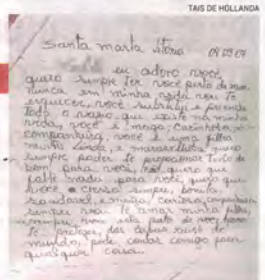 TAIS DE HOLLANDA
Santa Marta Vitória 09 05 07
eu adoro você
quero sempre ter você perto de mim
nunca em minha vida vou te
esquecer, você
todo o vazio que existe na minha
vida, você é meiga, carinhosa,
companheira, você é uma filha
muito linda, e maravilhosa quero
sempre poder te proporcionar tudo de
bom para você, não quero que
falte nada para você, quero que
você sempre, bonita,
saudável, e meiga, cariosa, companheira
sempre vou te amar minha filha,
sempre, vou perto de você, para
te proteger, das coisas do
mundo, pode contar comigo para
qualquer coisa.